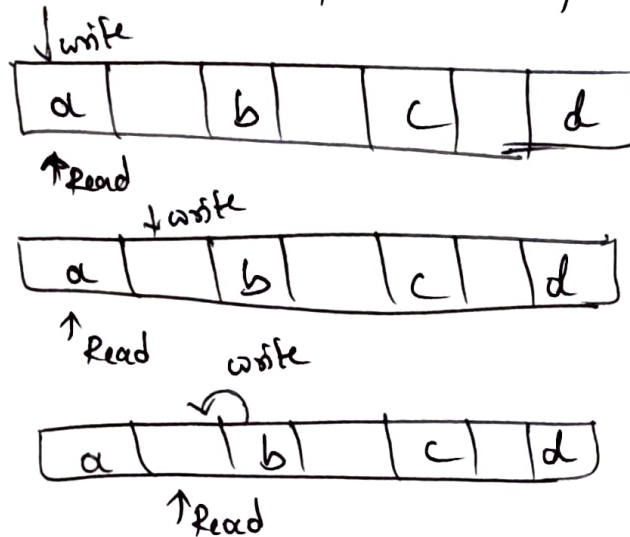 write
a b c d
Read
write
a b c d
Read
write
a b c d
Read